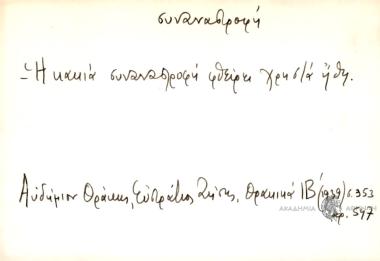 συναναστροφή
- Η κακιά συναναστροφή φθείρει χρηστά ήθη.
Αυδήμιον Θράκης, Ευστράτιος Ζήσης, Θρακικά ΙΒ' (1939) σ. 353
αρ. 547
ΑΚΑΔΗΜΙΑ ΑΘΗΝΩΝ